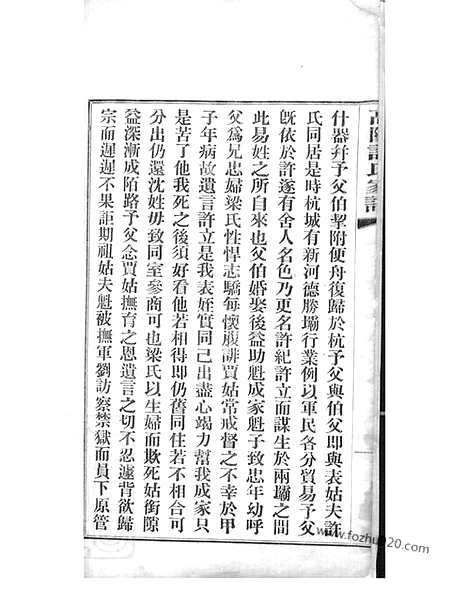 高陽許氏家譜
什器幷予父伯挈附便舟復歸於杭予父與伯父即與表姑夫許
氏同居是時杭城有新河德勝壩行業例以軍民各分貿易予父
旣依於許遂有舍人名色乃更名許紀許立而謀生於兩壩之間
此易姓之所自來也父伯婚娶後益助魁成家魁子致忠年幼呼
父爲兄忠婦梁氏性悍志驕每懷腹誹賈姑常戒督之不幸於甲
子年病故遺言許立是我表姪實同己出盡心竭力幫我成家只
是苦了他我死之後須好看他若相得即仍舊同住若不相合可
分出仍還沈姓毋致同室參商可也梁氏以生婦而欺死姑銜隙
益深漸成陌路予父念賈姑撫育之恩遺言之切不忍遽背欲歸
宗而遲遲不果詎期祖姑夫魁被撫軍劉訪察禁獄而員下原管
www.fozhu920.com